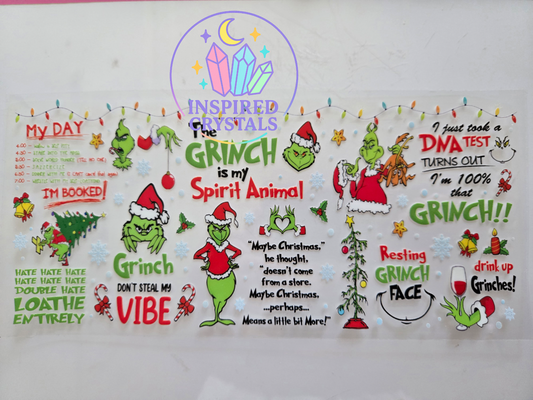 INSPIRED
CRYSTALS
My DAY
I'M BOOKED!
HATE HATE HATE
HATE HATE HATE
DOUBLE HATE
LOATHE
ENTIRELY
The
GRINCH
is my
Spirit Animal
Grinch
DON'T STEAL MY
VIBE
"Maybe Christmas,"
he thought,
"doesn't come
from a store.
Maybe Christmas,
...perhaps...
Means a little bit More!"
I just took a
DNA TEST
TURNS OUT
I'm 100%
that
GRINCH!!
Resting
GRINCH
FACE
drink up
Grinches!